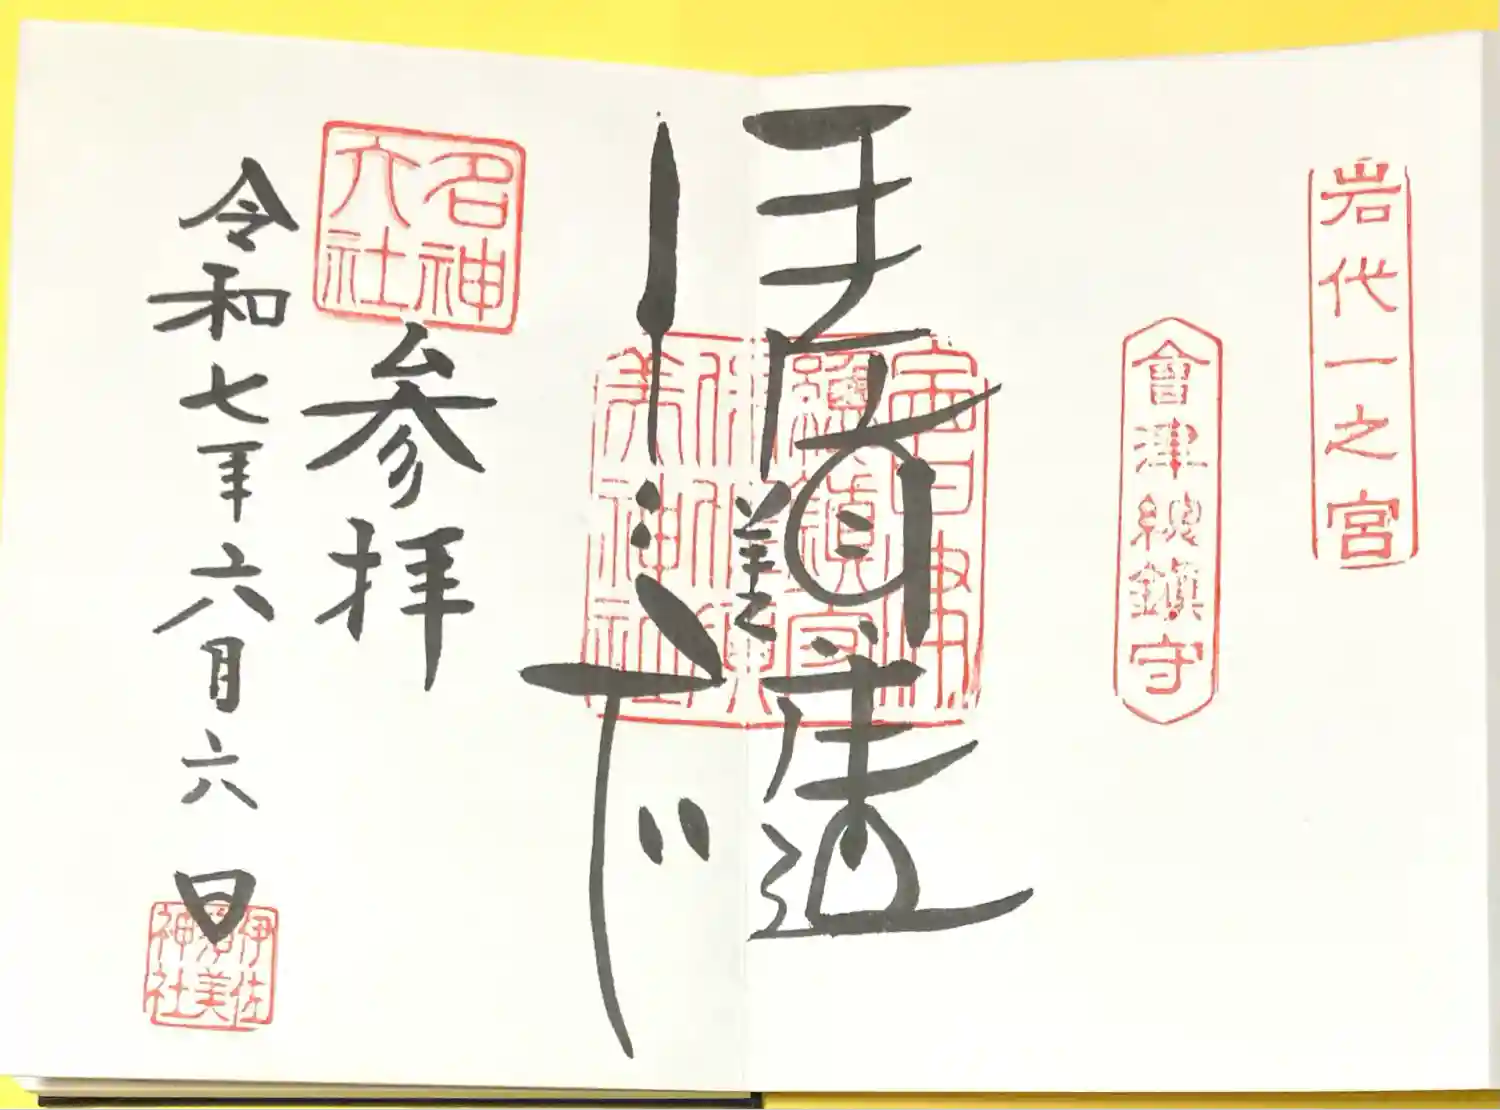 岩代一之宮
會津總鎮守
會津
總鎮守
伊佐須
美神社
名神
大社
参拝
令和七年六月六日
伊佐
須美
神社